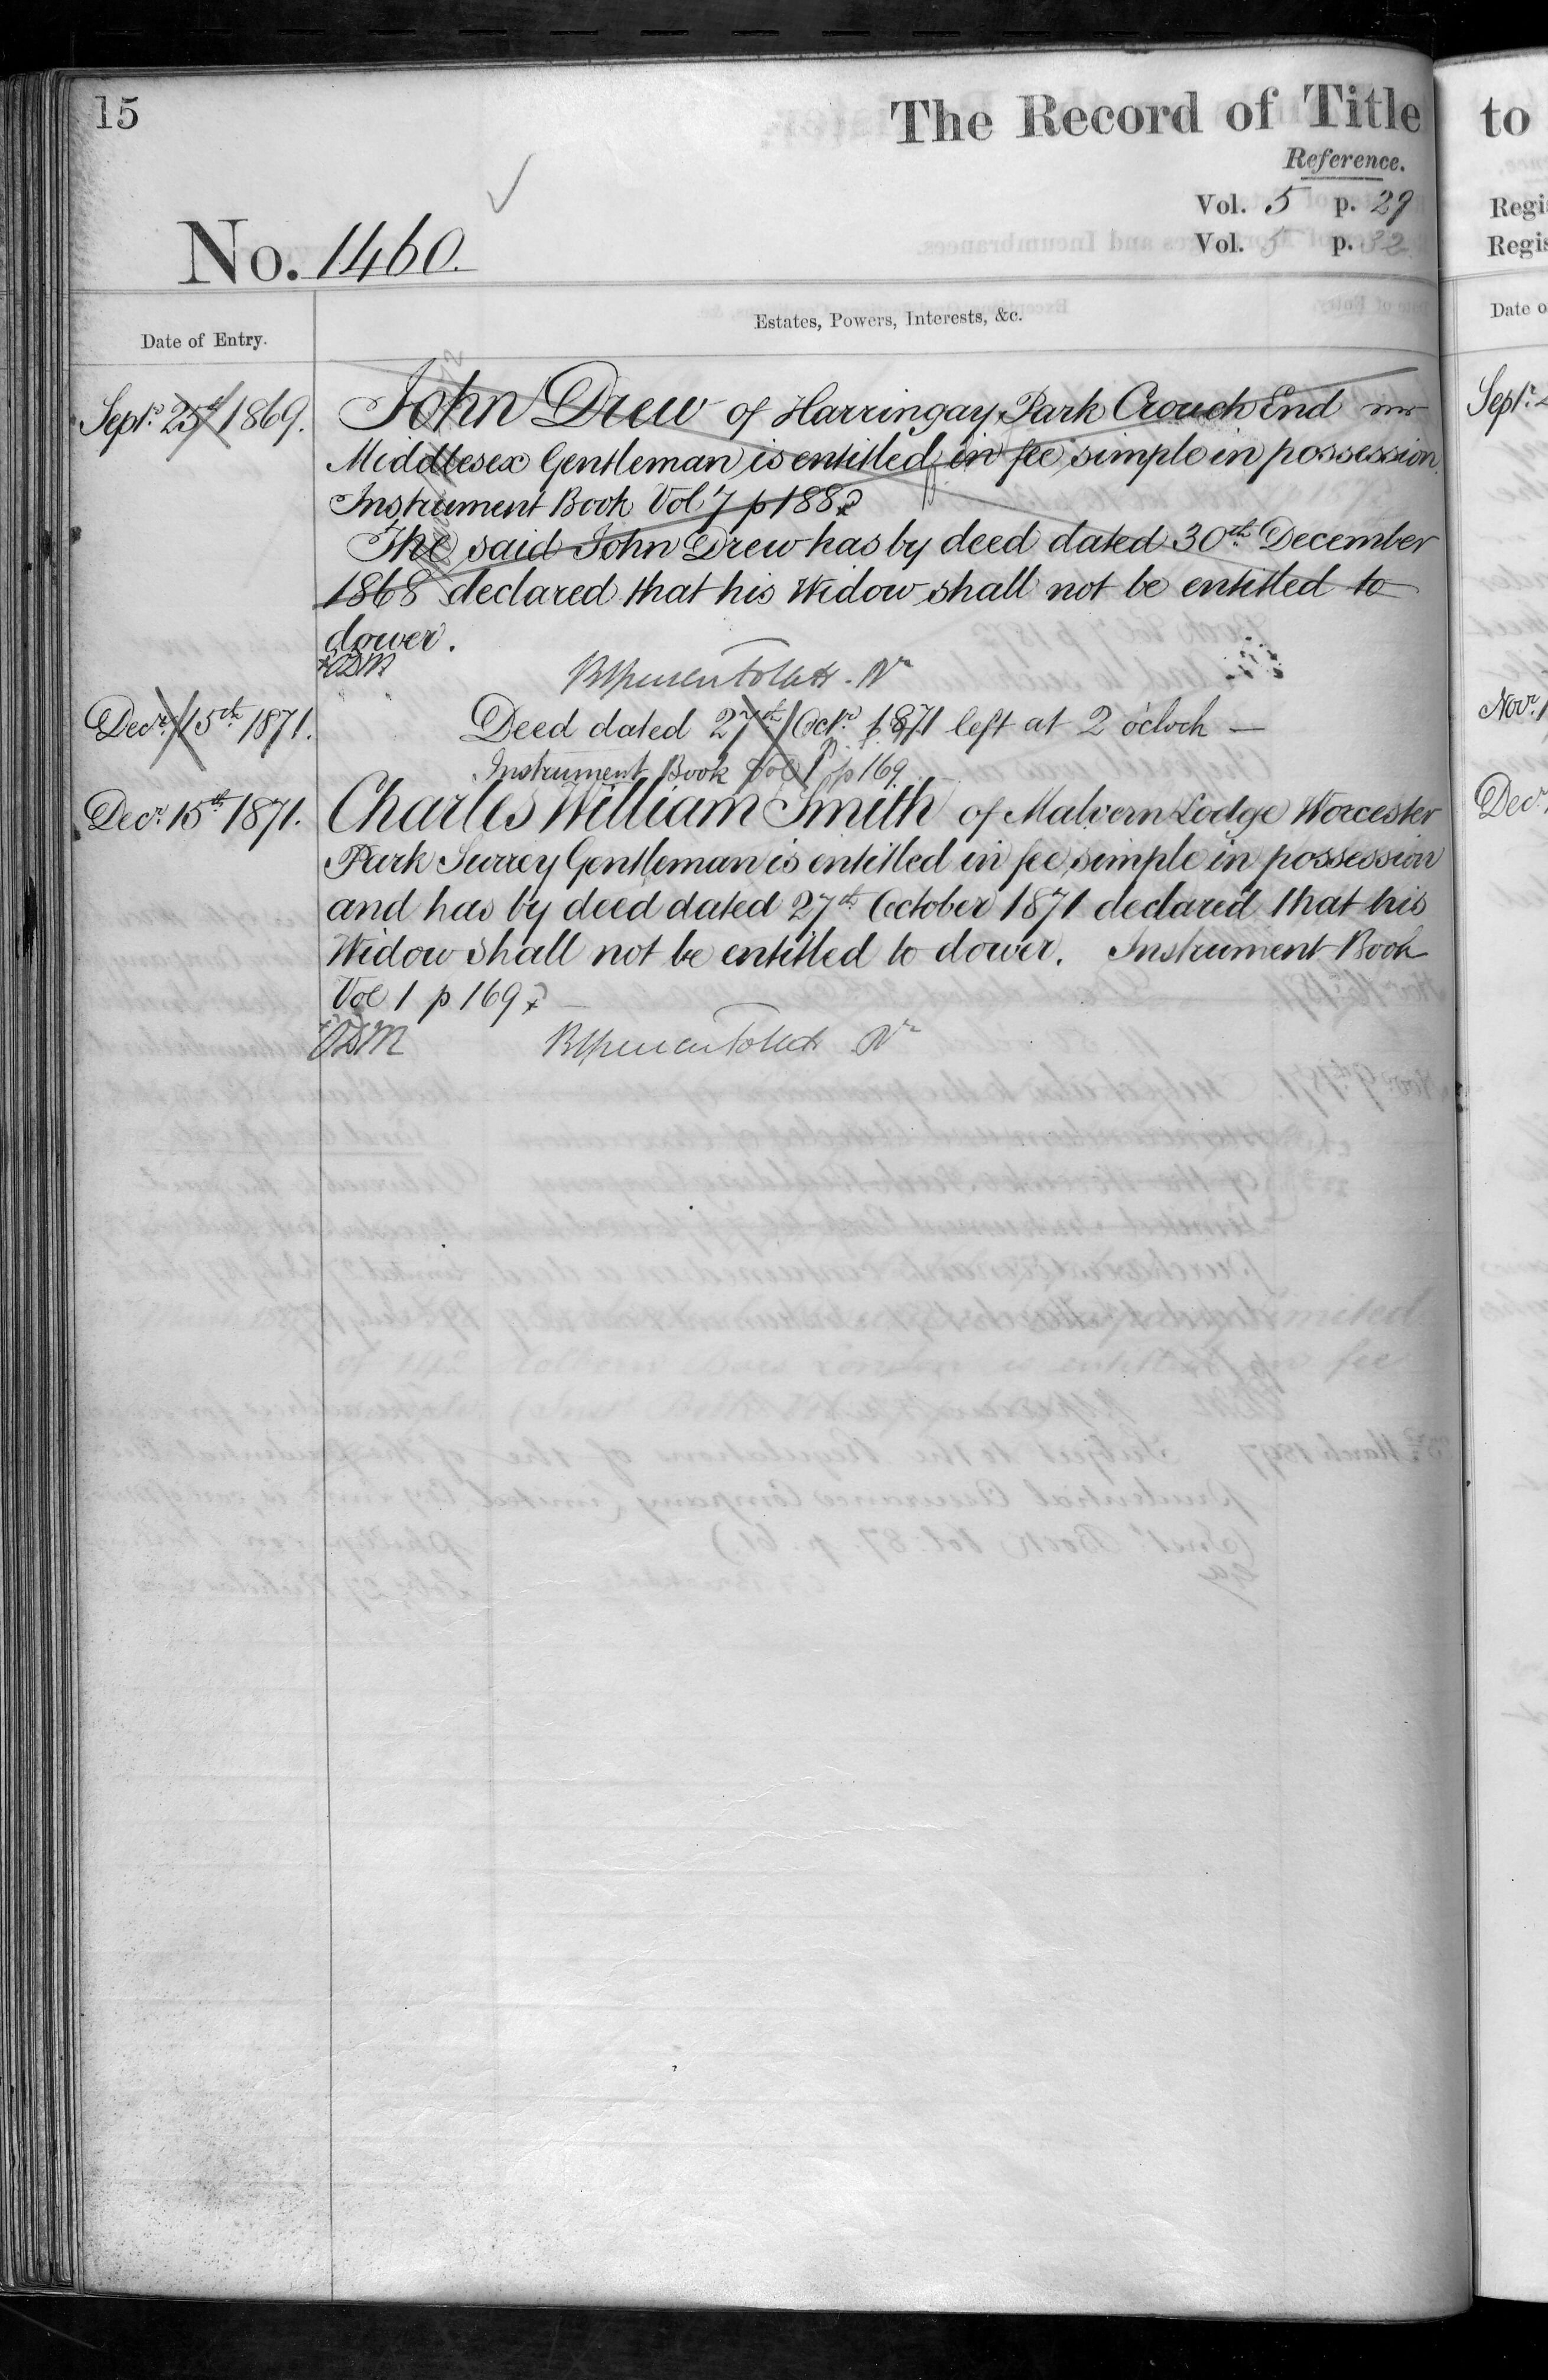 15
The Record of Title
to
Reference.
Vol. 5 p. 29
Regis
Vol. 5 p. 32
Regis
No. 1460.
Date of Entry.
Estates, Powers, Interests, &c.
Date o
Septr. 25th 1869.
John Drew of Harringay Park Crouch End
Septr. 2
Middlesex Gentleman is entitled in fee simple in possession
Instrument Book Vol 7 p 188
The said John Drew has by deed dated 30th December
1868 declared that his Widow shall not be entitled to
dower.
Decr. 15th 1871.
Deed dated 27th Octr. 1871 left at 2 o'clock —
Novr. 1
Instrument Book Vol 1 p 169
Decr. 15th 1871.
Charles William Smith of Malvern Lodge Worcester
Decr.
Park Surrey Gentleman is entitled in fee simple in possession
and has by deed dated 27th October 1871 declared that his
Widow shall not be entitled to dower. Instrument Book
Vol 1 p 169